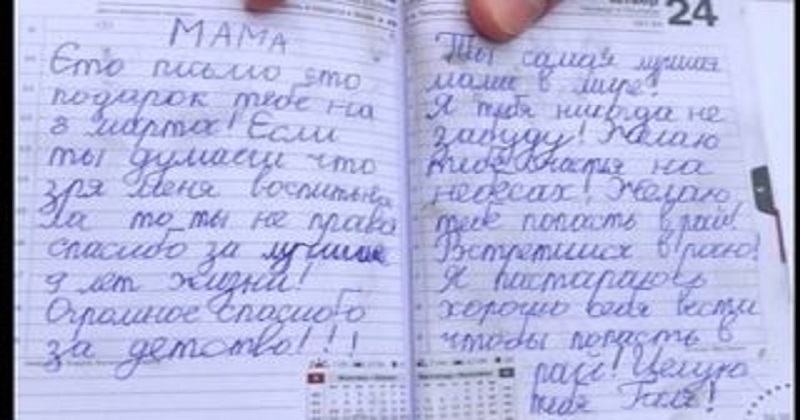 МАМА
Єто письмо єто
подарок тебе на
8 марта! Если
ты думаеш что
зря меня воспитыва
ла то ты не права
спасибо за лучшие
9 лет жизни!
Огромное спасибо
за детство!!!
24
Ты самая лучшая
мама в мире!
Я тебя никогда не
забуду! Желаю
тебе счастья на
небесах! Желаю
тебе попасть в рай!
Встретимся в раю!
Я пастараюсь
хорошо себя вести
чтобы попасть в
рай! Целую
тебя Галя!